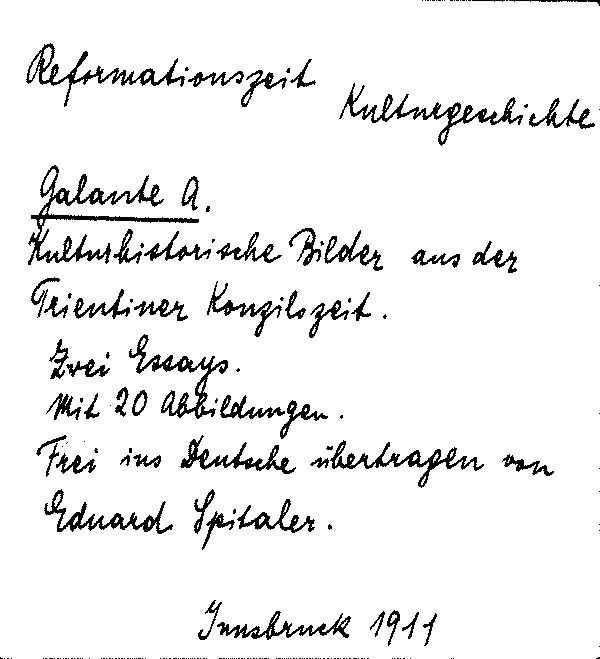 Reformationszeit
Kulturgeschichte
Galante A.
Kulturhistorische Bilder aus der
Trientiner Konzilszeit.
Zwei Essays.
Mit 20 Abbildungen.
Frei ins Deutsche übertragen von
Eduard Spitaler.
Innsbruck 1911